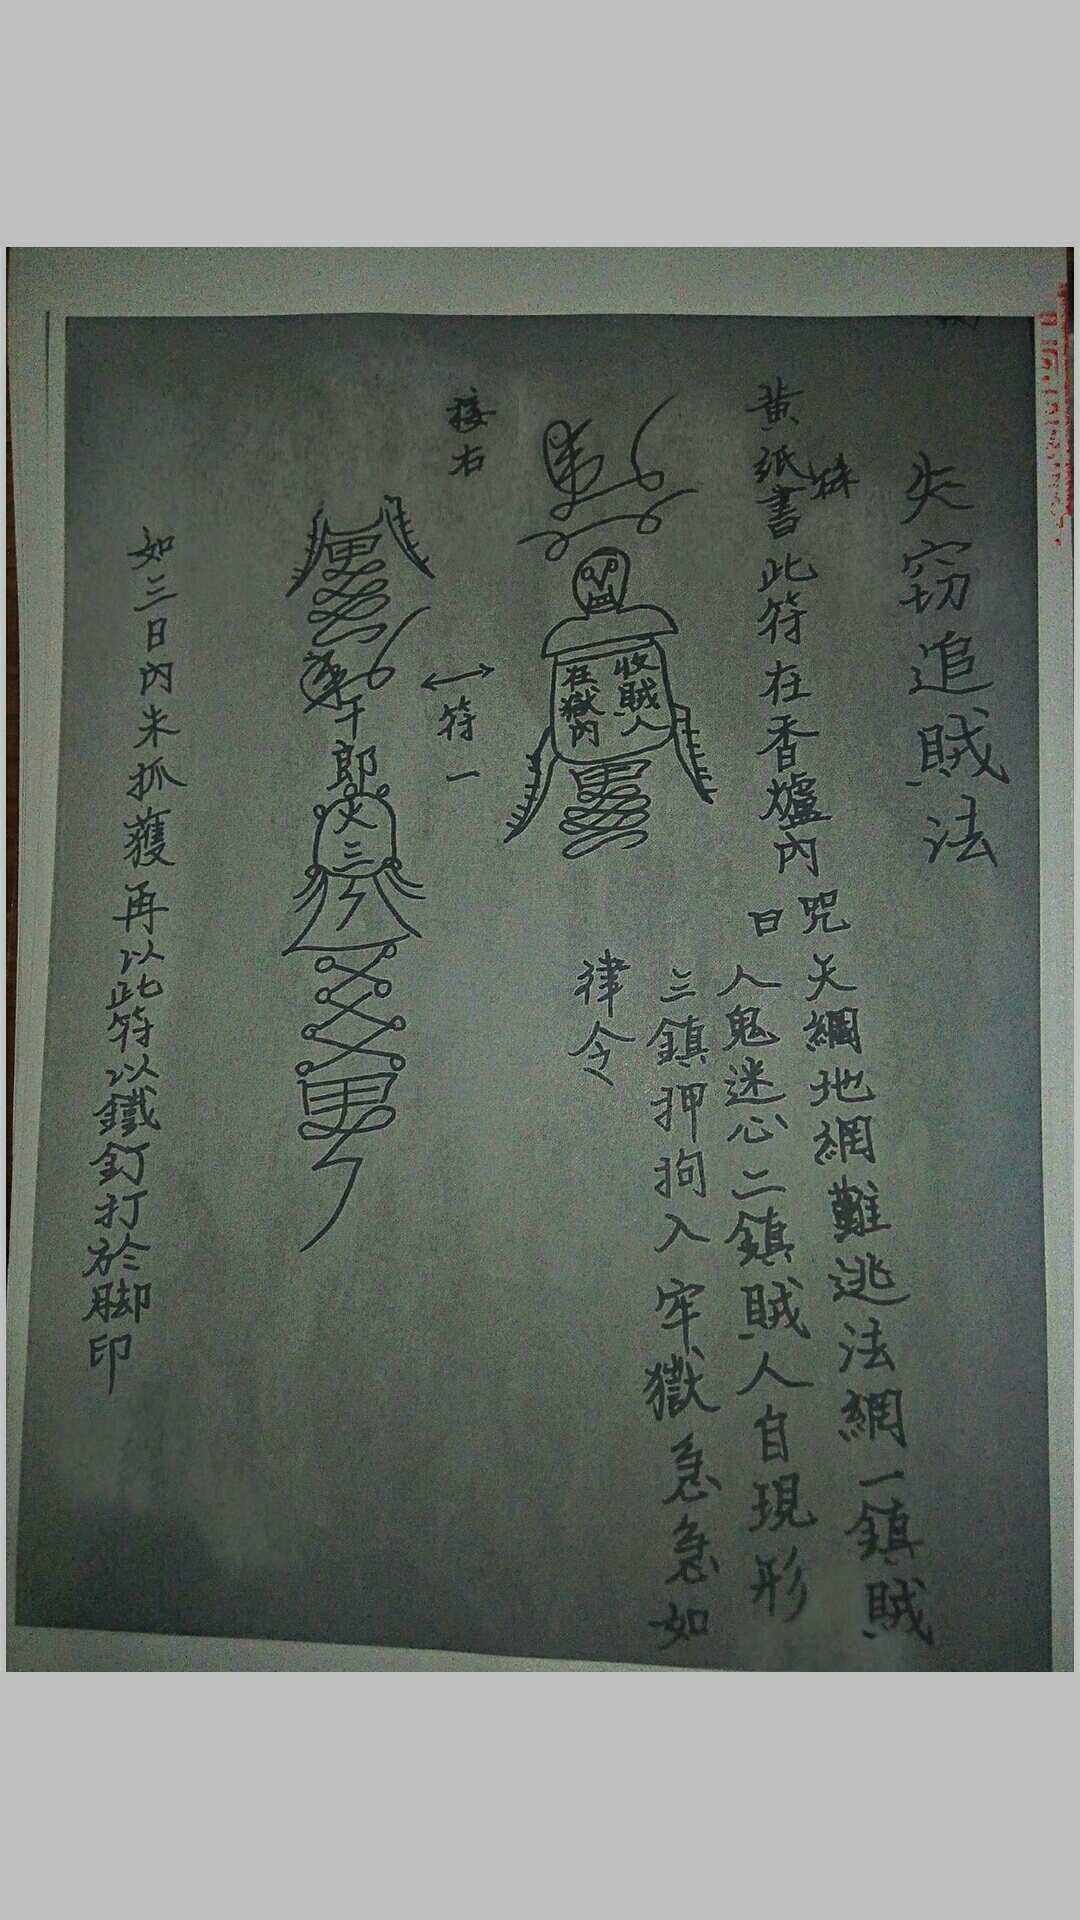 失窃追賊法
黄紙硃書此符在香爐內
咒曰
天網地網難逃法網一鎮賊
人鬼迷心二鎮賊人自現形
三鎮押拘入牢獄急急如
律令
收賊人
在獄內
符一
接右
千郎
火三
如三日內未抓獲再以此符以鐵釘打於脚印